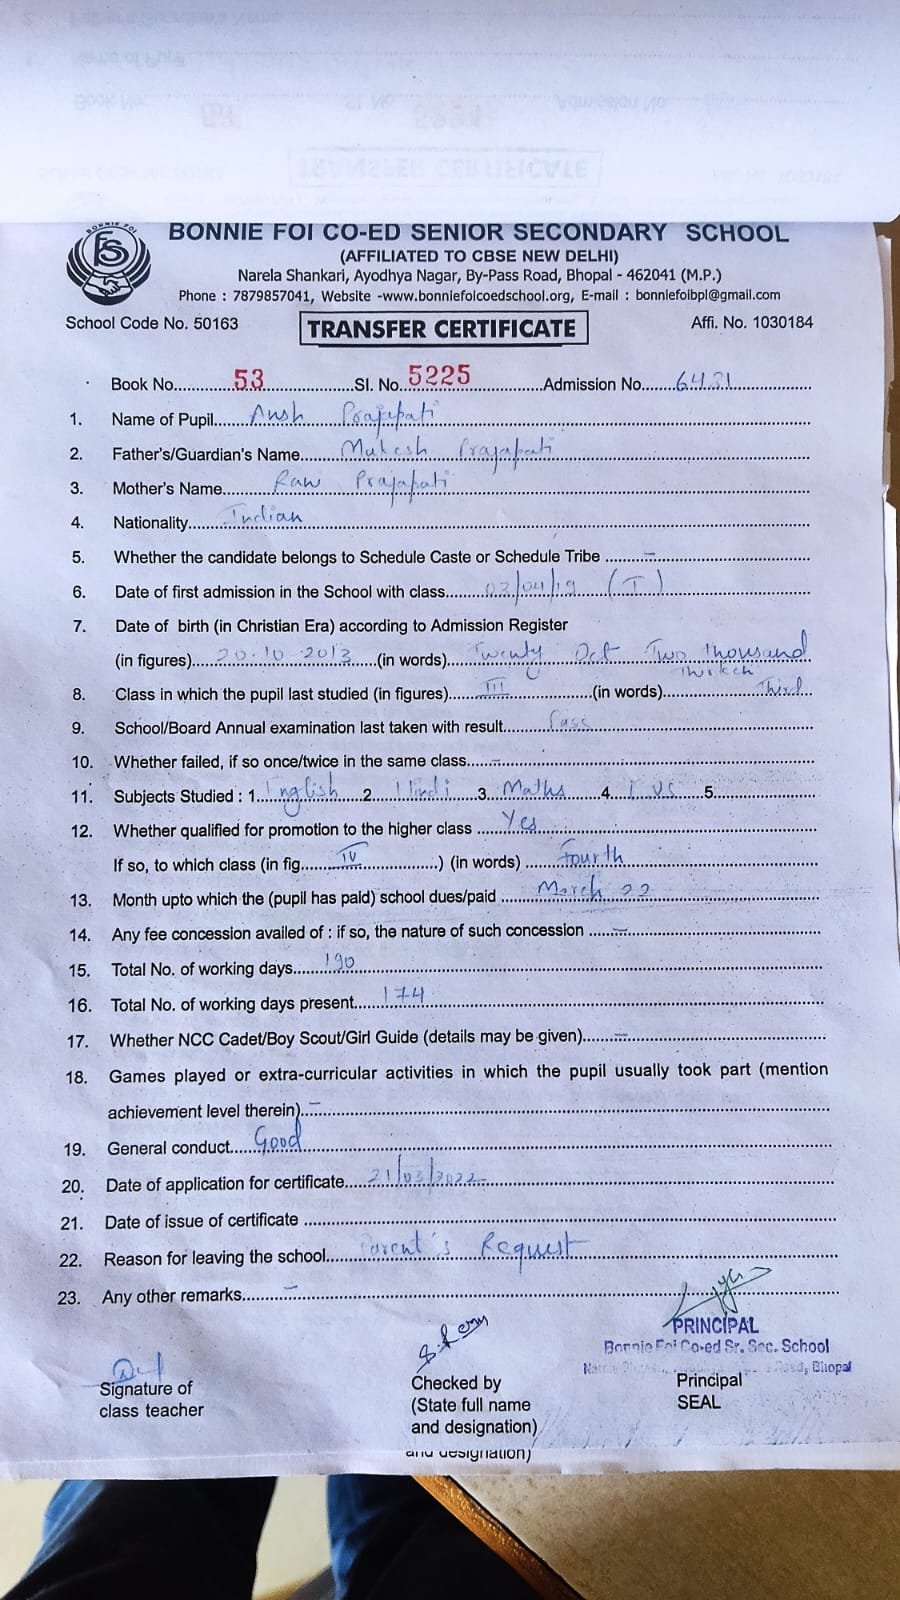 BONNIE FOI
BONNIE FOI CO-ED SENIOR SECONDARY SCHOOL
(AFFILIATED TO CBSE NEW DELHI)
Narela Shankari, Ayodhya Nagar, By-Pass Road, Bhopal - 462041 (M.P.)
Phone : 7879857041, Website -www.bonniefoicoedschool.org, E-mail : bonniefoibpl@gmail.com
School Code No. 50163 TRANSFER CERTIFICATE Affi. No. 1030184
Book No. 53 Sl. No. 5225 Admission No. 6481
1. Name of Pupil Ansh Prajapati
2. Father's/Guardian's Name Mukesh Prajapati
3. Mother's Name Prajapati
4. Nationality Indian
5. Whether the candidate belongs to Schedule Caste or Schedule Tribe –
6. Date of first admission in the School with class 03/04/19 (I)
7. Date of birth (in Christian Era) according to Admission Register
(in figures) 20.10.2013 (in words) Twenty Oct Two thousand
Thirteen
8. Class in which the pupil last studied (in figures) III (in words) Third
9. School/Board Annual examination last taken with result Pass
10. Whether failed, if so once/twice in the same class –
11. Subjects Studied : 1. English 2. Hindi 3. Maths 4. EVS 5.
12. Whether qualified for promotion to the higher class Yes
If so, to which class (in fig. IV ) (in words) Fourth
13. Month upto which the (pupil has paid) school dues/paid March 22
14. Any fee concession availed of : if so, the nature of such concession –
15. Total No. of working days 190
16. Total No. of working days present 174
17. Whether NCC Cadet/Boy Scout/Girl Guide (details may be given) –
18. Games played or extra-curricular activities in which the pupil usually took part (mention
achievement level therein) –
19. General conduct Good
20. Date of application for certificate 21/03/2022
21. Date of issue of certificate
22. Reason for leaving the school Parent's Request
23. Any other remarks –
PRINCIPAL
Bonnie Foi Co-ed Sr. Sec. School
Road, Bhopal
Signature of
class teacher
Checked by
(State full name
and designation)
Principal
SEAL
and designation)